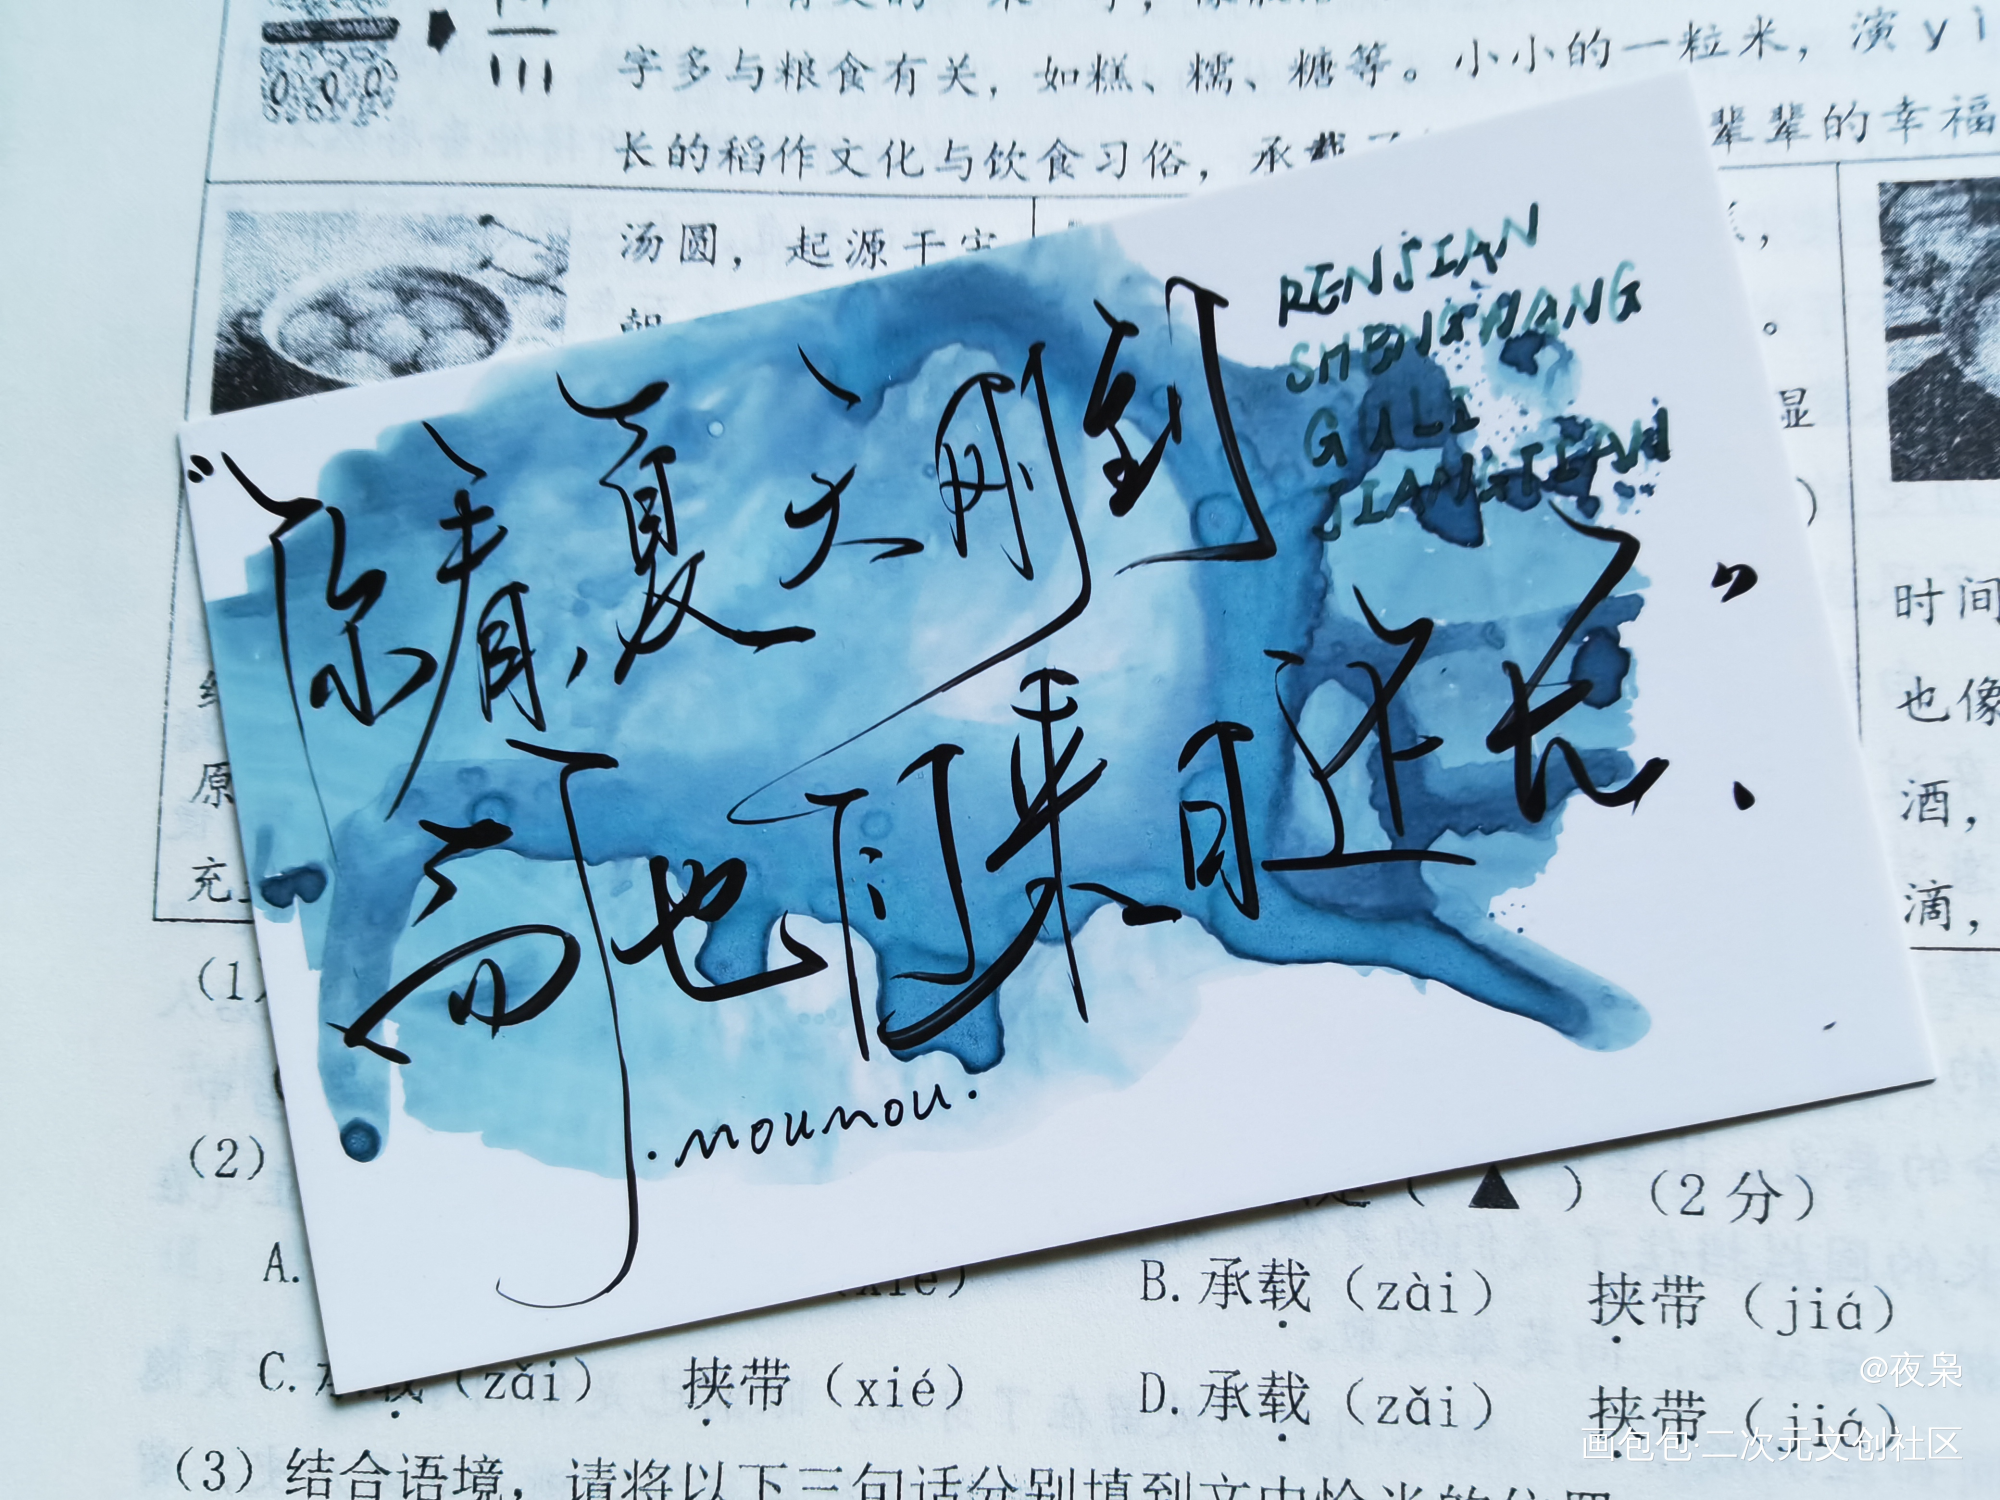 字多与粮食有关，如糕、糯、糖等。小小的一粒米，演yì
长的稻作文化与饮食习俗，承载
辈辈的幸福
汤圆，起源于宋
显
)
RENJIAN
SHENGHANG
GULI
JIANGJIAN
“你看，夏天刚到
而我们来日还长.”
.mounou.
时间
也像
酒，
滴，
原
充
(1)
(2)
( ▲ ) (2分)
A.
(xié)
B.承载 (zài) 挟带 (jiá)
C.承载 (zǎi) 挟带 (xié)
D.承载 (zǎi) 挟带 (jiá)
(3) 结合语境，请将以下三句话分别填到文中恰当的位置
@夜枭
画包包·二次元文创社区